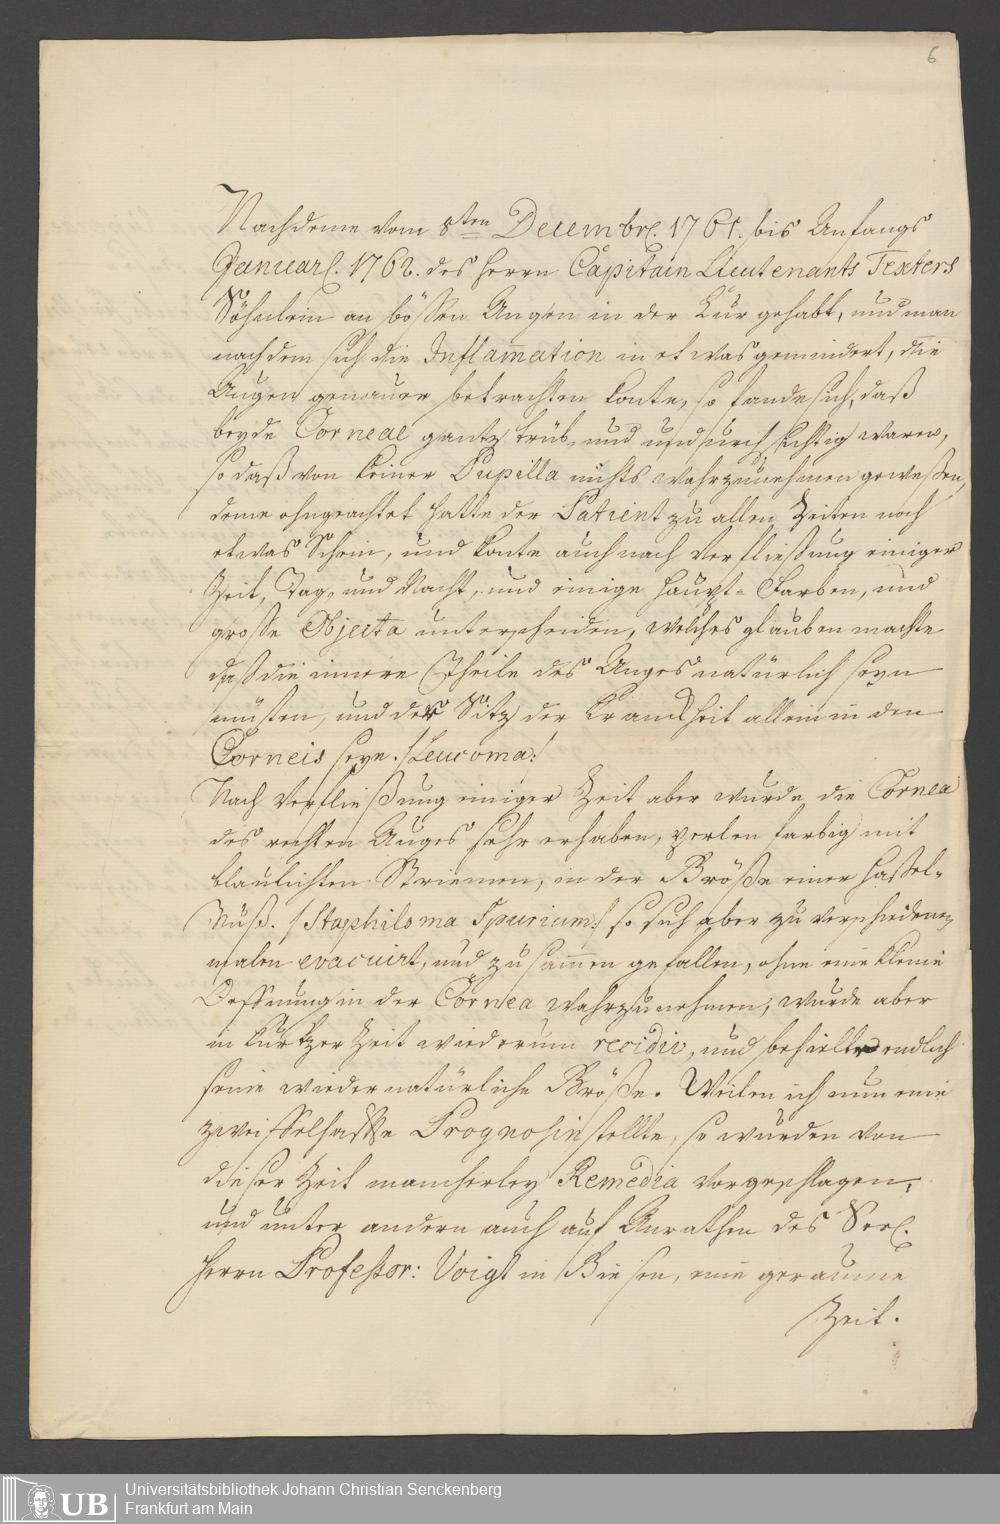 6
Nachdeme vom 8ten Decembr. 1761. bis Anfangs
Januarl. 1762. des Herrn Capitain Lieutenants Texters
Söhnlein an bößen Augen in der Cur gehabt, und man
nach dem sich die Inflam̄ation in etwas gemindert, die
Augen genauer betrachten konte, so fande sich, daß
beyde Corneae gantz trüb, und undurchsichtig waren,
so daß von keiner Pupilla nichts wahrzunehmen geweßen,
deme ohngeachtet hatte der Patient zu allen Zeiten noch
etwas Schein, und konte auch nach Verfließung einiger
Zeit, Tag, und Nacht, und einige Haupt-Farben, und
große Objecta unterscheiden, welches glauben machte
daß die innere Theile des Auges natürlich seyn
müßten, und der Sitz der Kranckheit allein in den
Corneis seye. /:Leucoma:/
Nach Verfließung einiger Zeit aber wurde die Cornea
des rechten Auges sehr erhaben, perlen farbig mit
blaulichten Striemen, in der Größe einer Haßel-
Nuß. /:Staphiloma Spurium:/ so sich aber zu verschiedenen
malen evacuirt, und zusam̄en gefallen, ohne eine kleine
Oeffnung in der Cornea wahrzunehmen, wurde aber
in kurtzer Zeit wiederum recidiv, und behielte endlich
seine wiedernatürliche Größe. Weilen ich nun eine
zweiffelhaffte Prognosin stellte, so wurden von
dieser Zeit mancherley Remedia vorgeschlagen,
und unter andern auch auf Anrathen des Seel.
Herrn Profeßor: Voigt in Giesen, eine geraume
Zeit.
UB
Universitätsbibliothek Johann Christian Senckenberg
Frankfurt am Main